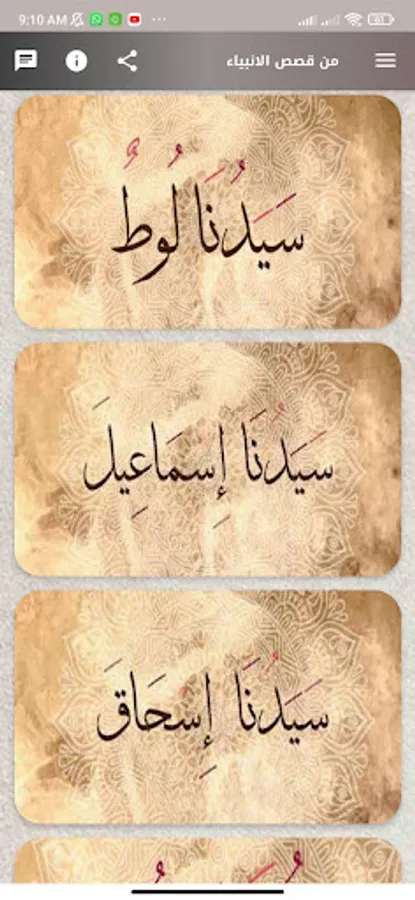 9:10 AM
61
من قصص الانبياء
سَيَدُنَا لُوطٌ
سَيَدُنَا إِسمَاعِيلَ
سَيَدُنَا إِسحَاقَ